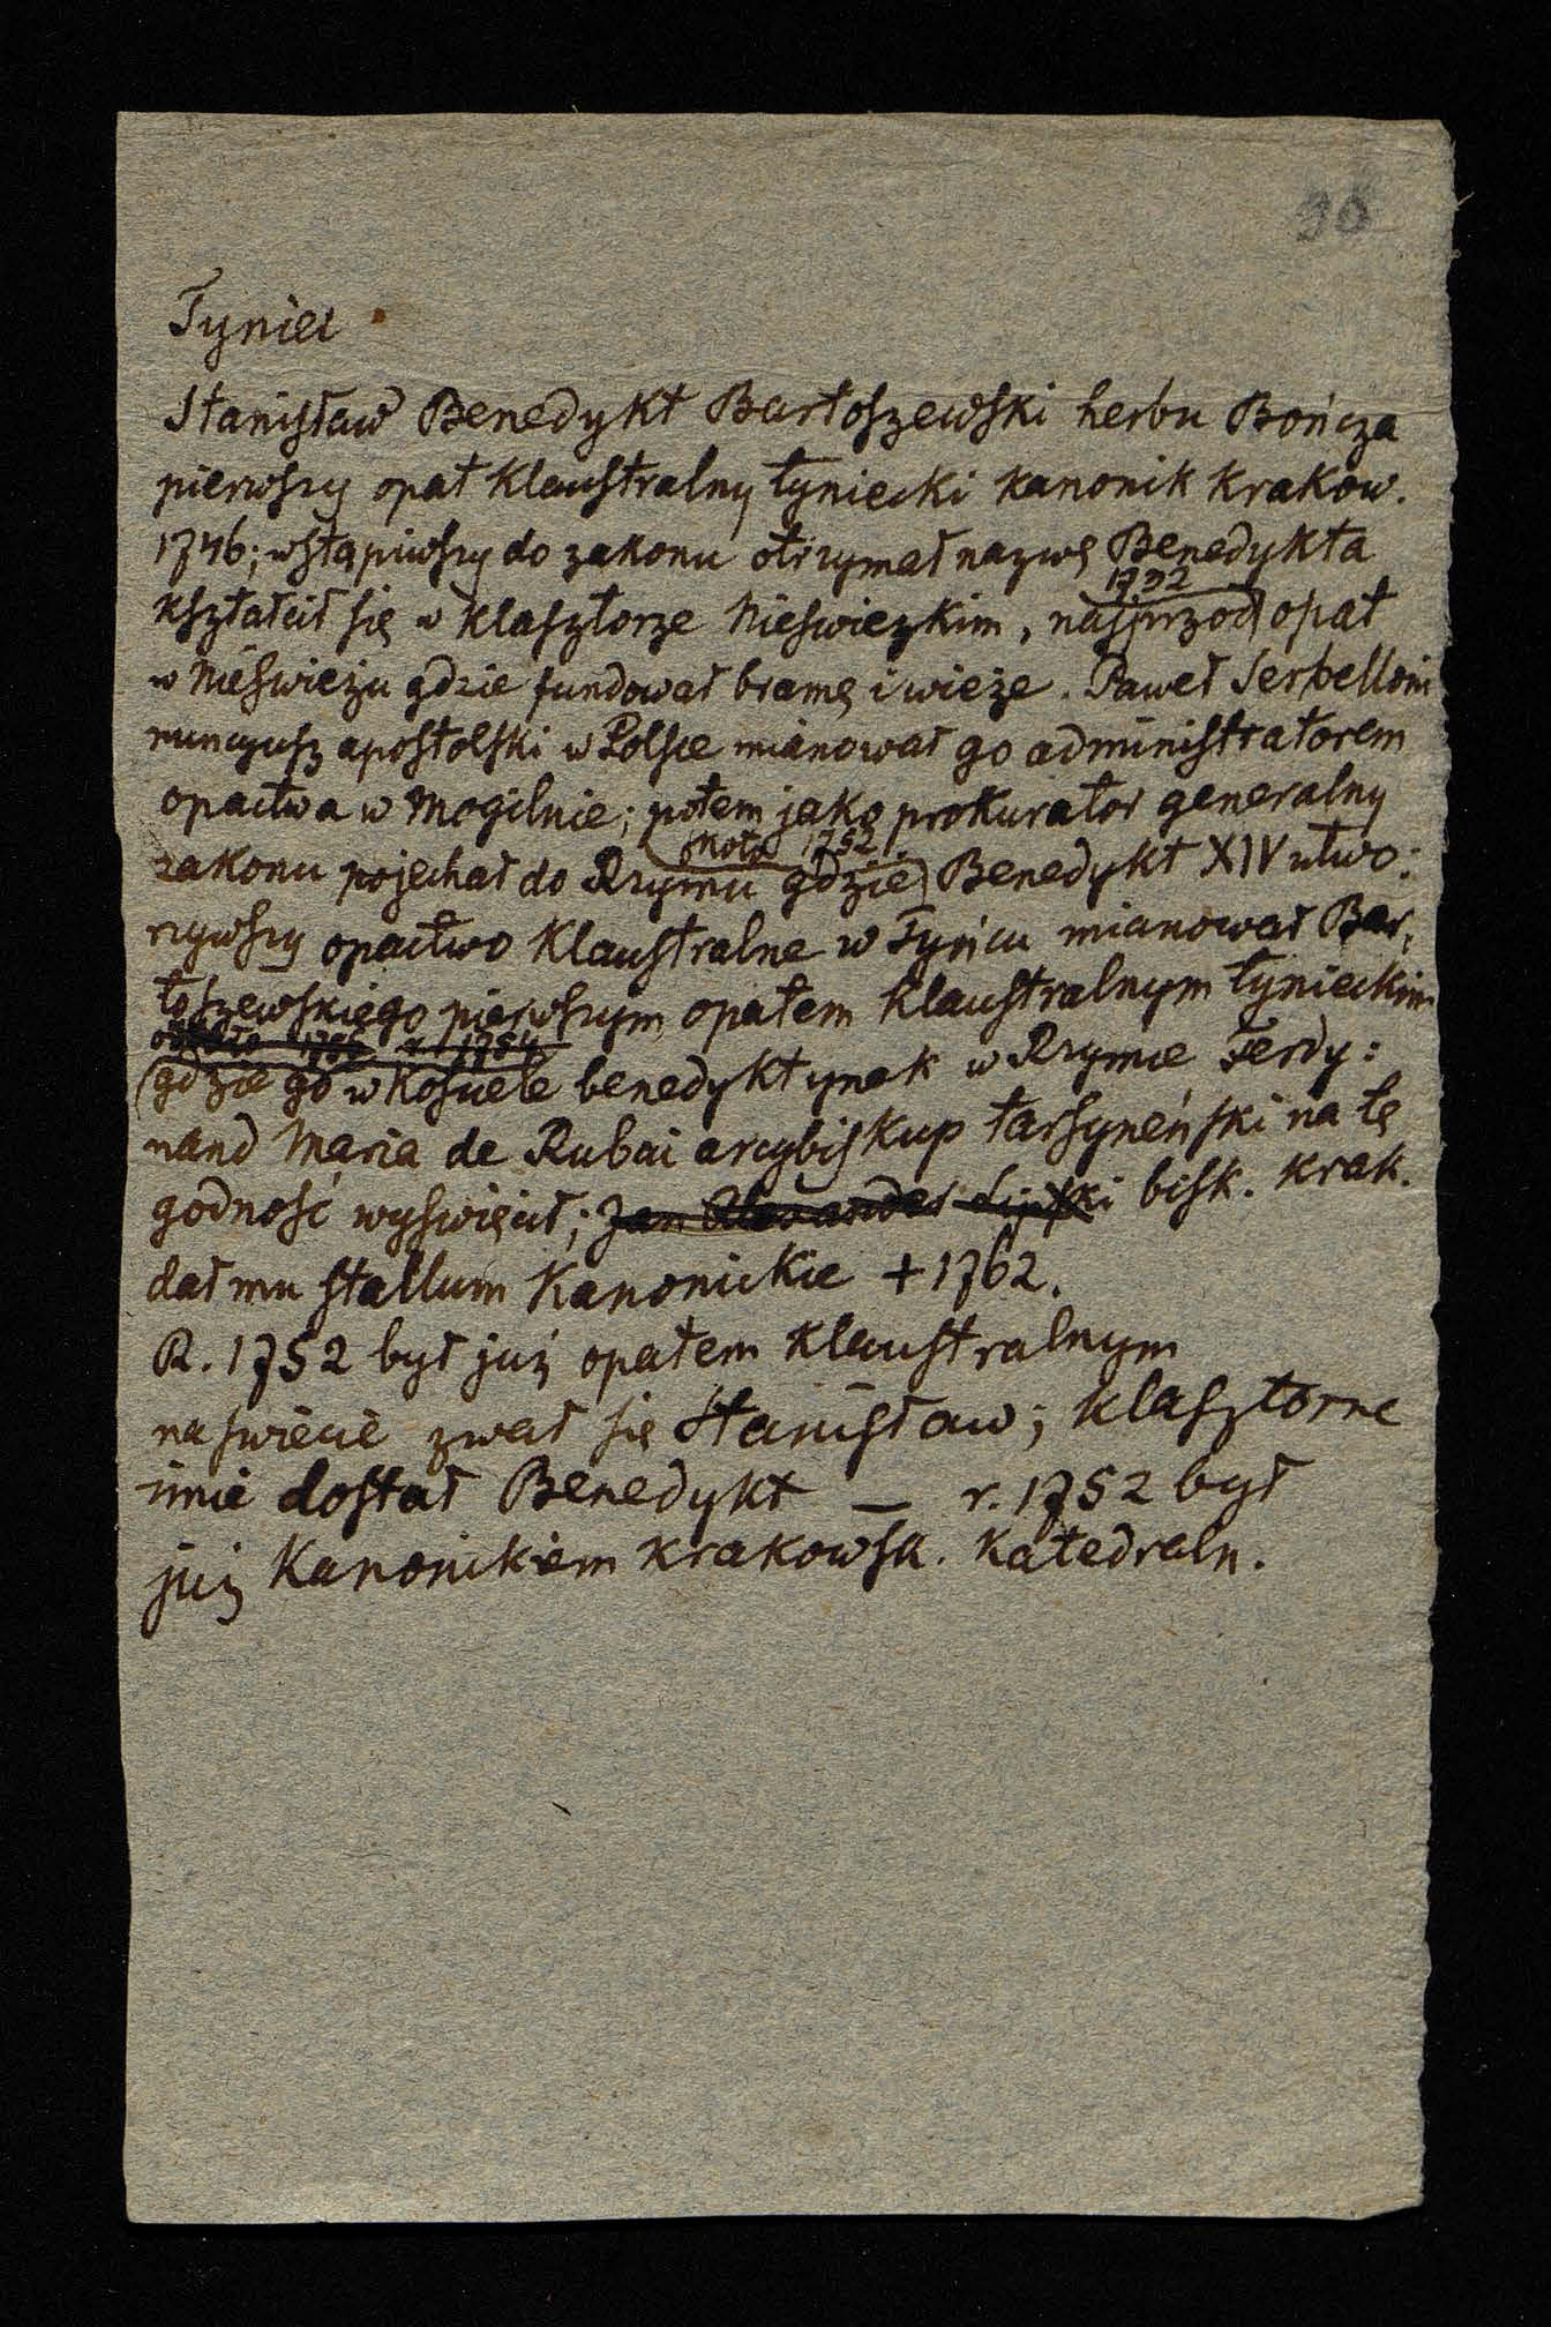 30
Tyniec
Stanisław Benedykt Bartoszewski herbu Bończa
pierwszy opat klaustralny tyniecki kanonik krakow.
1746; wstąpiwszy do zakonu otrzymał nazwę Benedykta
1732
kształcił się w klasztorze Nieswiezkim, najprzod opat
w Nieświeżu gdzie fundował bramę i wieże. Paweł Serbelloni
nuncyusz apostolski w Polsce mianował go administratorem
opactwa w Mogilnie; potem jako prokurator generalny
około 1752
zakonu pojechał do Rzymu gdzie Benedykt XIV utwo:
rzywszy opactwo klaustralne w Tyńcu mianował Bar,
toszewskiego pierwszym opatem klaustralnym tynieckim
1754
(gdzie go w kosciele benedyktynek w Rzymie Ferdy:
nand Maria de Rubei arcybiskup tarsyneński na tę
godność wyświęcił; Jan Alexander Lipski bisk. krak.
dał mu stallum kanonickie + 1762.
R. 1752 był już opatem klaustralnym
na swiecie zwał się Stanisław; klasztorne
imie dostał Benedykt — r. 1752 był
już kanonikiem krakowsk. katedraln.